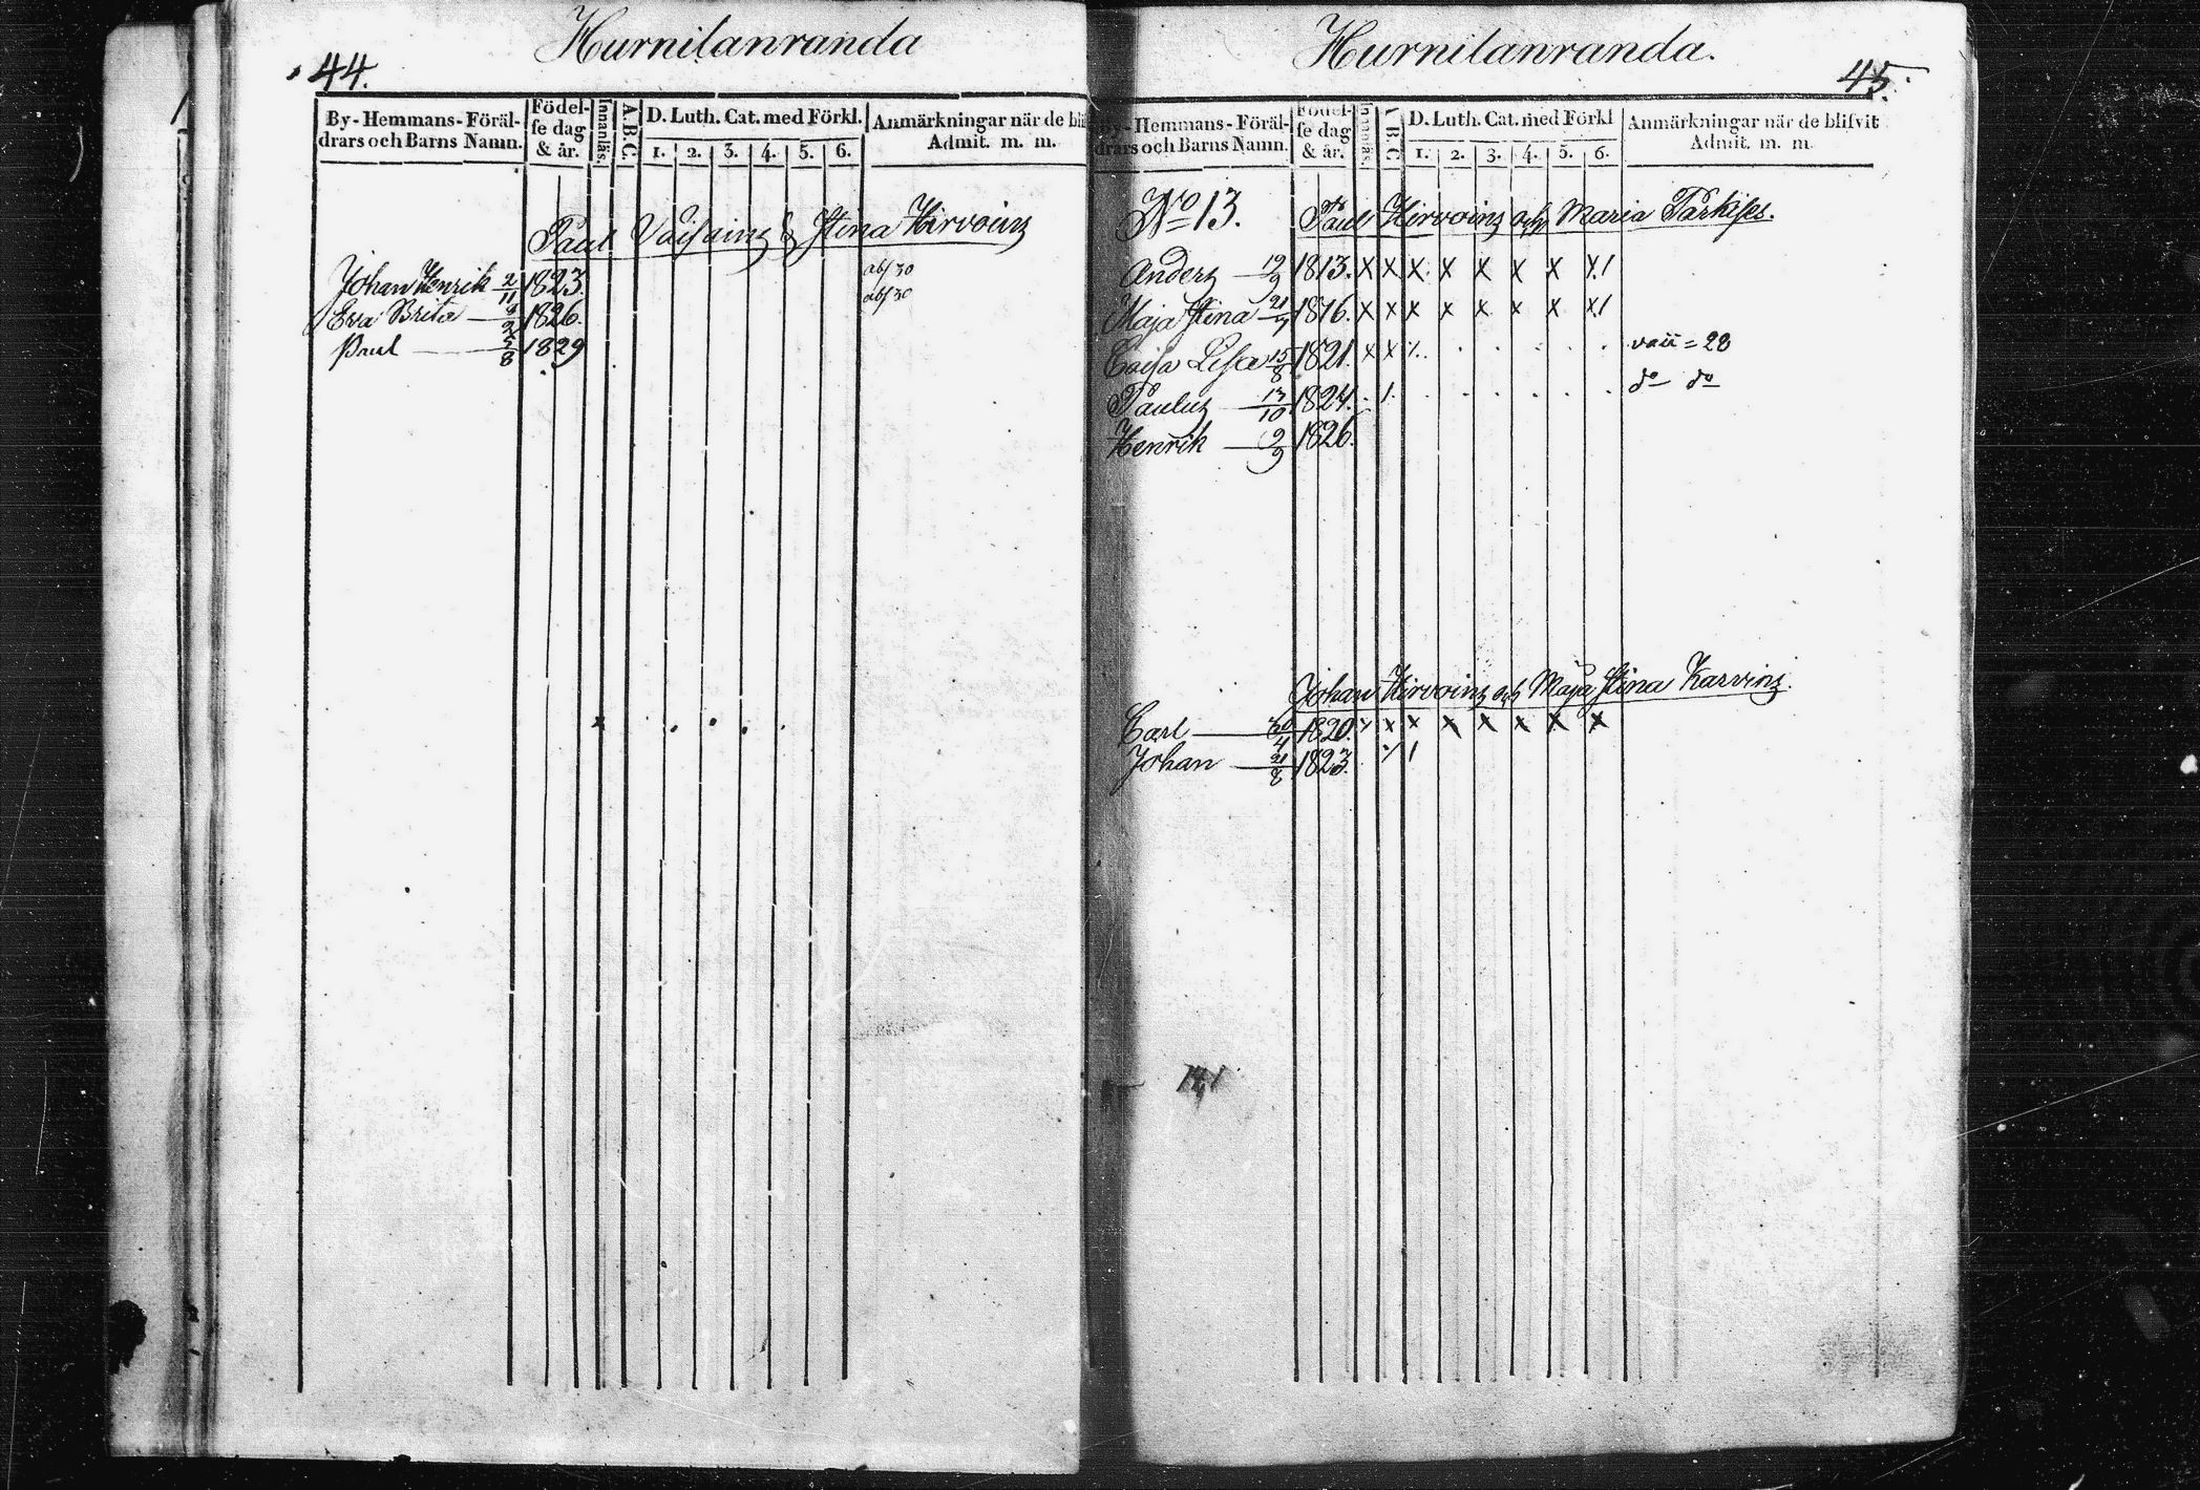 44.
Hurnilanranda
By-Hemmans-Föräl-
drars och Barns Namn.
Födel-
se dag
& år.
Innanläs.
A.B.C.
D. Luth. Cat. med Förkl.
1. 2. 3. 4. 5. 6.
Anmärkningar när de bli
Admit. m. m.
Paul Väisäinz & Stina Hirvoinz
Johan Henrik 2/11 1823. abs 30
Eva Brita 1826. abs 30
Paul 5/8 1829
Hurnilanranda.
45.
By-Hemmans-Föräl-
drars och Barns Namn.
Födel-
se dag
& år.
Innanläs.
A.B.C
D. Luth. Cat. med Förkl
1. 2. 3. 4. 5. 6.
Anmärkningar när de blifvit
Admit. m. m
No 13. Paul Hirvoinz och Maria
Anders 19/9 1813. x x x x x x x x1
Maja Stina 1816. x x x x x x x x1
Caisa Lisa 15/8 1821. x x
Paulus 13/10 1824.
do do
Henrik 9/9 1826.
Johan Hirvoinz och Maja Stina Karvinz.
Carl 1820. x x x x x x x
Johan 21/8 1823.